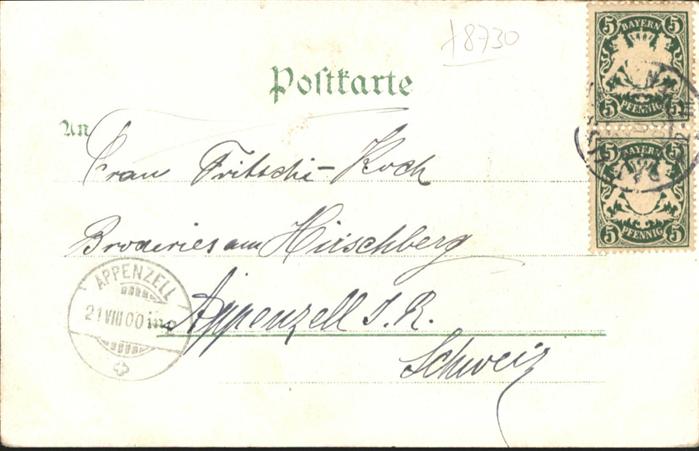 18730
5 BAYERN 5
5 PFENNIG 5
Postkarte
An
Frau Fritschi-Koch
5 BAYERN 5
5 PFENNIG 5
Broderies am Hirschberg
APPENZELL
21 VIII 00
in Appenzell I. R.
Schweiz